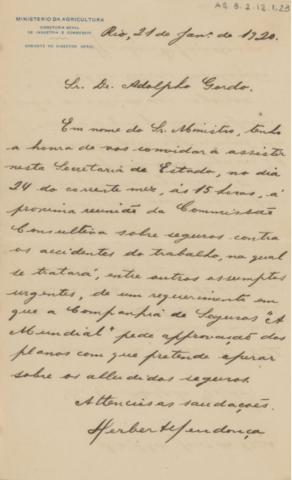 AG 5.2.12.1.23
MINISTERIO DA AGRICULTURA
DIRECTORIA GERAL
DE INDUSTRIA E COMMERCIO
GABINETE DO DIRECTOR GERAL
Rio, 21 de Janº. de 1920.
Sr. Dr. Adolpho Gordo.
Em nome do Sr. Ministro, tenho
a honra de vos convidar á assistir
nesta Secretaria de Estado, no dia
24 do corrente mez, ás 15 horas, á
proxima reunião da Commissão
Consultiva sobre seguros contra
os accidentes do trabalho, na qual
se tratará, entre outros assumptos
urgentes, de um requerimento em
que a Companhia de Seguros "A
Mundial" pede approvação dos
planos com que pretende operar
sobre os alludidos seguros.
Attenciosas saudações.
Mendonça